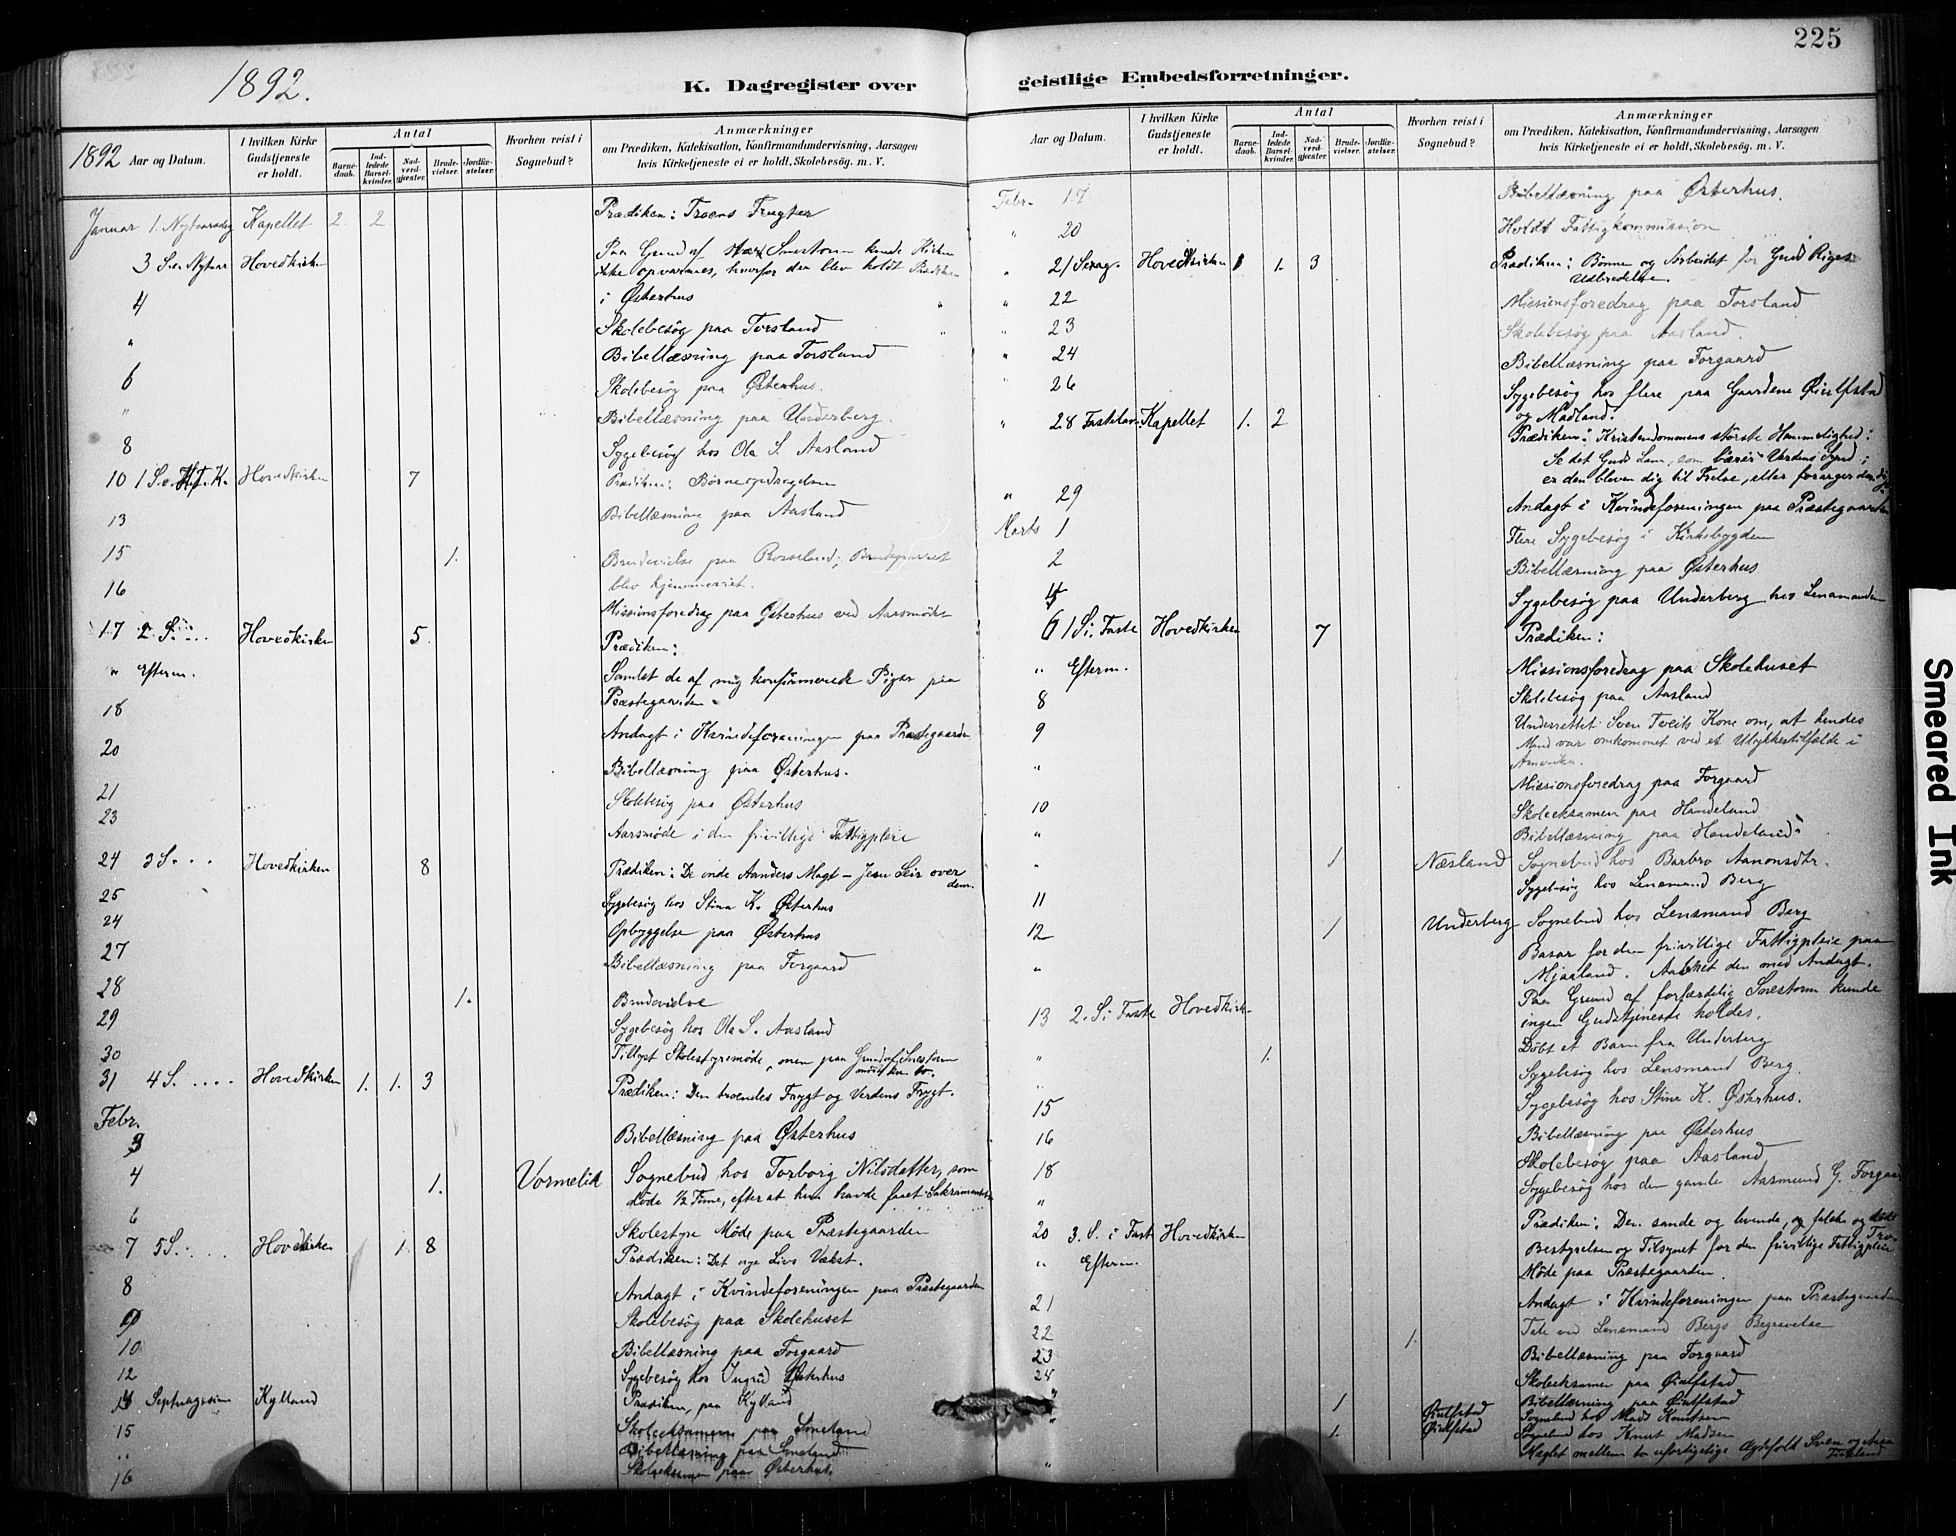 225
1892.
K. Dagregister over geistlige Embedsforretninger.
1892 Aar og Datum.
I hvilken Kirke Gudstjeneste er holdt.
Antal
Barnedaab.
Indledede Barselkvinder.
Nadverdgjæster.
Brudevielser.
Jordfæstelser.
Hvorhen reist i Sognebud?
Anmærkninger
om Prædiken, Katekisation, Konfirmandundervisning, Aarsagen
hvis Kirketjeneste ei er holdt, Skolebesøg. m. V.
Januar 1. Nytaarsdag Kapellet 2 2 Prædiken: Troens Frugter
3 S. e. Nytaar Hovedkirken Paa Grund af Snestorm kunde Kirken
ikke opvarmes, hvorfor der blev holdt Prædiken
i Østerhus
4 Skolebesøg paa Torsland
" Bibellæsning paa Torsland
6 Skolebesøg paa Østerhus.
" Bibellæsning paa Underberg.
8 Sygebesøg hos Ola S. Aasland
10 1 S. e. H. T. K. Hovedkirken 7 Prædiken: Børneopdragelsen
13 Bibellæsning paa Aasland
15 1. Brudevielse paa Rosseland; Brudeparret
blev hjemmeviet.
16 Missionsforedrag paa Østerhus ved Aarsmøde
17 2. S. Hovedkirken 5 Prædiken:
" Efterm. Samlet de af mig konfirmerede Piger paa
Præstegaarden.
18 Andagt i Kvindeforeningen paa Præstegaarden
20 Bibellæsning paa Østerhus.
21 Skolebesøg paa Østerhus
23 Aarsmøde i den frivillige Fattigpleie
24 3 S. Hovedkirken 8 Prædiken: De onde Aanders Magt – Jesu Seir over
dem.
25 Sygebesøg hos Stina K. Østerhus
24 Opbyggelse paa Østerhus
27 Bibellæsning paa Forgaard
28 1. Brudevielse
29 Sygebesøg hos Ola S. Aasland
30 Tillyst Skolestyremøde, men paa Grund af Snestorm
31 4 S. Hovedkirken 1. 1. 3 Prædiken: Den troendes Frygt og Verdens Frygt.
Febr.
3 Bibellæsning paa Østerhus
4 1. Vormelid Sognebud hos Torborg Nilsdatter, som
døde ½ Time, efterat hun havde faaet Sakramentet
6 Skolestyre Møde paa Præstegaarden
7 5 S. Hovedkirken 1 8 Prædiken: Det nye Livs Vækst.
8 Andagt i Kvindeforeningen paa Præstegaarden
9 Skolebesøg paa Skolehuset
10 Bibellæsning paa Forgaard
12 Sygebesøg hos Ingrid Østerhus
14 Septuagesima Kylland Prædiken, paa Kylland
15 Skoleeksamen paa Smeland
" Bibellæsning paa Smeland
16 Skoleeksamen paa Østerhus
Aar og Datum.
I hvilken Kirke Gudstjeneste er holdt.
Antal
Barnedaab.
Indledede Barselkvinder.
Nadverdgjæster.
Brudevielser.
Jordfæstelser.
Hvorhen reist i Sognebud?
Anmærkninger
om Prædiken, Katekisation, Konfirmandundervisning, Aarsagen
hvis Kirketjeneste ei er holdt, Skolebesøg. m. V.
Febr. 17 Bibellæsning paa Østerhus.
" 20 Holdt Fattigkommission
" 21 Sexag. Hovedkirken 1 1. 3 Prædiken: Bønnen og Arbeidet for Guds Riges
Udbredelse.
" 22 Missionsforedrag paa Torsland
" 23 Skolebesøg paa Aasland.
" 24 Bibellæsning paa Forgaard
" 26 Sygebesøg hos flere paa Gaardene Øiulfstad
og Madland.
" 28 Fastelavn Kapellet 1. 2 Prædiken: Kristendommens største Hemmelighed:
Se det Guds Lam, som bærer Verdens Synd;
er den bleven dig til Frelse, eller forarger den dig?
" 29 Andagt i Kvindeforeningen paa Præstegaarden
Marts 1 Flere Sygebesøg i Kirkebygden
2 Bibellæsning paa Østerhus
Sygebesøg paa Underberg hos Lensmanden
6 1 S. i Faste Hovedkirken 7 Prædiken:
" Efterm. Missionsforedrag paa Skolehuset
8 Skolebesøg paa Aasland
9 Underrettet Sven Tveits Kone om, at hendes
Mand var omkommet ved et Ulykkestilfælde i
Amerika.
" Missionsforedrag paa Forgaard
10 Skoleeksamen paa Handeland
" Bibellæsning paa Handeland
" 1 Næsland Sognebud hos Barbro Aanonsdtr.
11 Sygebesøg hos Lensmand Berg
12 1 Underberg Sognebud hos Lensmand Berg
" Basar for den frivillige Fattigpleie paa
Mjaaland. Aabnet den med Andagt.
13 2. S. i Faste Hovedkirk. Paa Grund af forfærdelig Snestorm kunde
ingen Gudstjeneste holdes.
" 1. Døbt et Barn fra Underberg
" Sygebesøg hos Lensmand Berg.
15 Sygebesøg hos Stina K. Østerhus.
16 Bibellæsning paa Østerhus
18 Skolebesøg paa Aasland
" Sygebesøg hos den gamle Aasmund G. Forgaard
20 3. S. i Fast Hovedkirken Prædiken: Den sande og levende, og falske og døde
Tro.
" Efterm. Bestyrelsen og Tilsynet for den frivillige Fattigpleie
Møde paa Præstegaarden.
21 Andagt i Kvindeforeningen paa Præstegaarden
22 1. Tale ved Lensmand Bergs Begravelse
23 Bibellæsning paa Forgaard
24 Skoleeksamen paa Øiulfstad
" Bibellæsning paa Øiulfstad
" 1 Øiulfstad Sognebud hos Mads Knutsen
1. Øiulfstad Sognebud hos Knut Madsen
" Mæglet mellem to uforligelige Ægtefolk Sven og
Smeared Ink